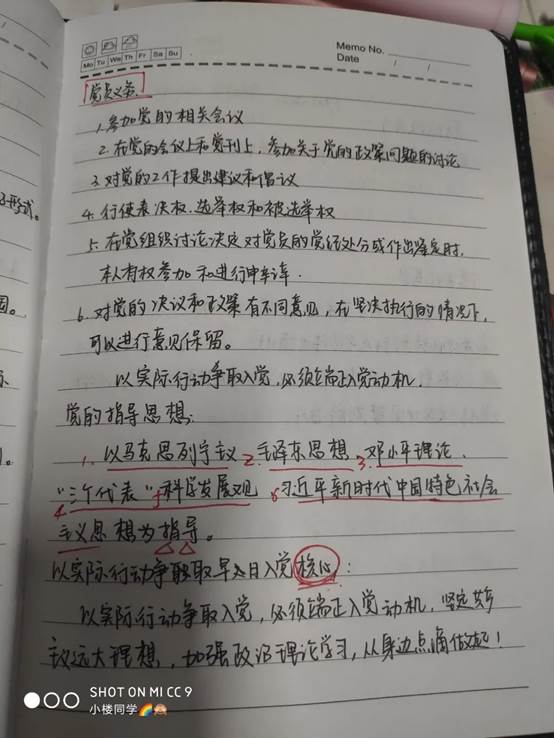 Mo Tu We Th Fr Sa Su
Memo No.
Date / /
党员义务
1.参加党的相关会议
2.在党的会议上和党刊上,参加关于党的政策问题的讨论
3.对党的工作提出建议和倡议
4.行使表决权.选举权和被选举权
5.在党组织讨论决定对党员的党纪处分或作出鉴定时,
本人有权参加和进行申辩.
6.对党的决议和政策有不同意见,在坚决执行的情况下,
可以进行意见保留。
以实际行动争取入党,必须端正入党动机,
党的指导思想:
1.以马克思列宁主义2.毛泽东思想3.邓小平理论、
4"三个代表"5科学发展观6习近平新时代中国特色社会
主义思想为指导。
以实际行动争取早日入党核心:
以实际行动争取入党,必须端正入党动机,坚定共产
主义远大理想,加强政治理论学习,从身边点滴做起!
形式。
SHOT ON MI CC 9
小楼同学